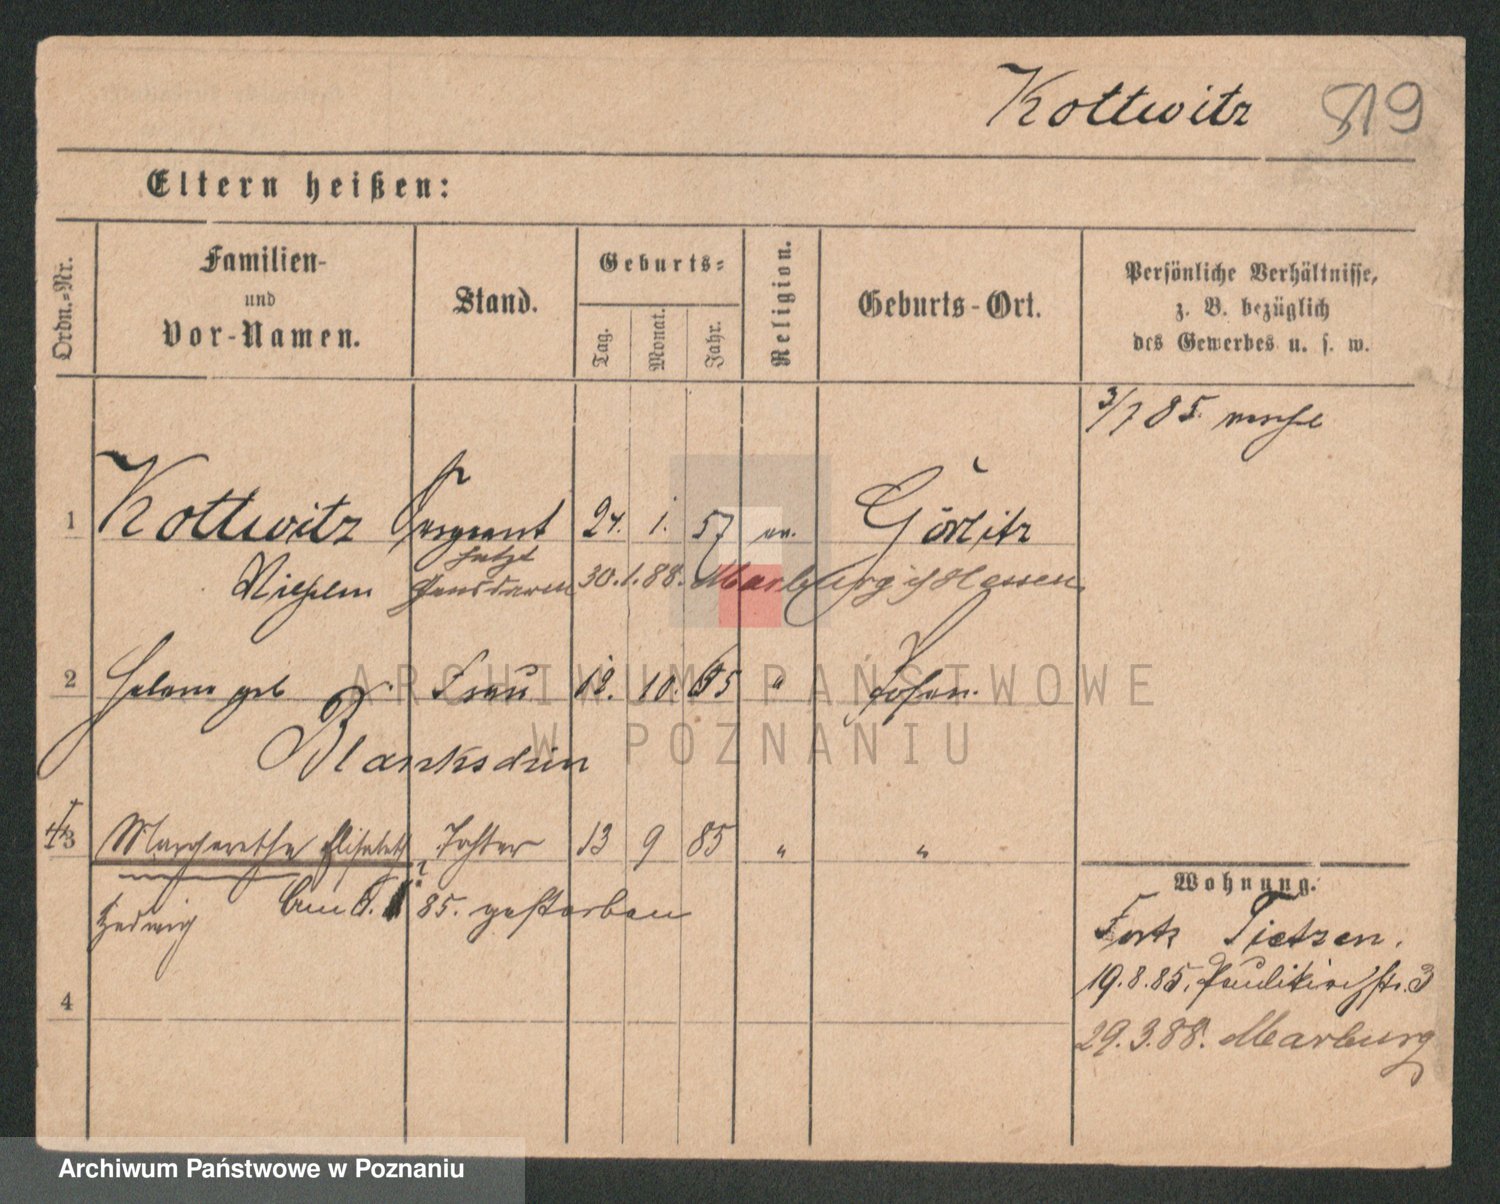 Kottwitz 819
Eltern heißen:
Ordn.=Nr.
Familien-
und
Vor-Namen.
Stand.
Geburts=
Tag.
Monat.
Jahr.
Religion.
Geburts-Ort.
Persönliche Verhältnisse,
z. B. bezüglich
des Gewerbes u. s. w.
3/7 85.
1 Kottwitz Sergeant 24. 1. 57 ev. Görlitz
jetzt
Wilhelm Gensdarm 30.1.88. Marburg i/Hessen
2 Helene geb Frau 12. 10. 65 " Posen.
Blanksdein
† 3 Margarethe Elisabeth Tochter 13 9 85 " "
Hedwig am 85. gestorben
4
Wohnung.
Fort Tietzen.
19.8.85. Paulikirchstr. 3
29.3.88. Marburg
ARCHIWUM PAŃSTWOWE
W POZNANIU
Archiwum Państwowe w Poznaniu